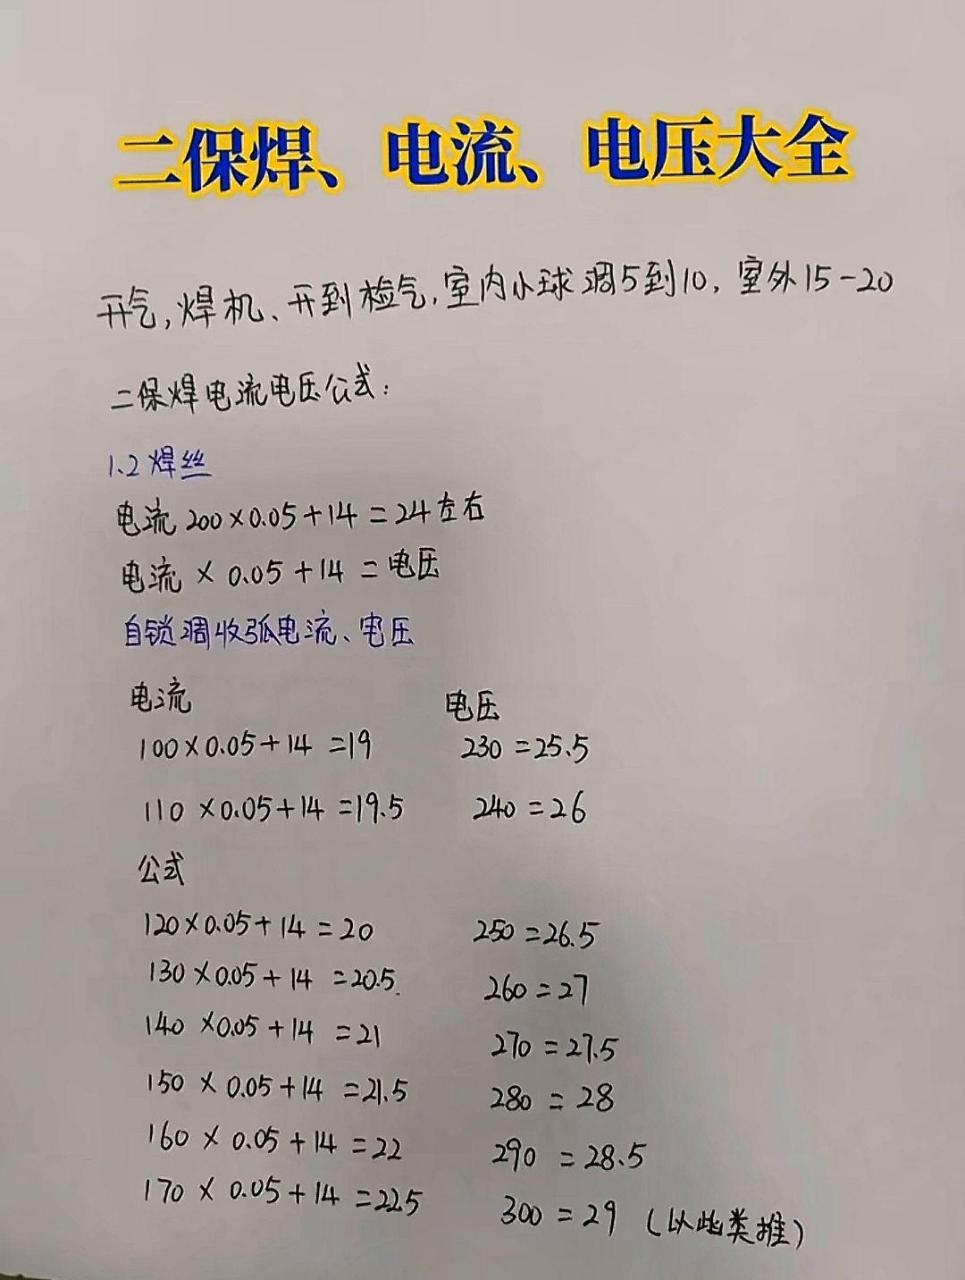 二保焊、电流、电压大全
开气,焊机、开到检气,室内小球调5到10,室外15-20
二保焊电流电压公式:
1.2焊丝
电流200×0.05+14=24左右
电流×0.05+14=电压
自锁调收弧电流、电压
电流 电压
100×0.05+14=19 230=25.5
110×0.05+14=19.5 240=26
公式
120×0.05+14=20 250=26.5
130×0.05+14=20.5 260=27
140×0.05+14=21 270=27.5
150×0.05+14=21.5 280=28
160×0.05+14=22 290=28.5
170×0.05+14=22.5 300=29(以此类推)